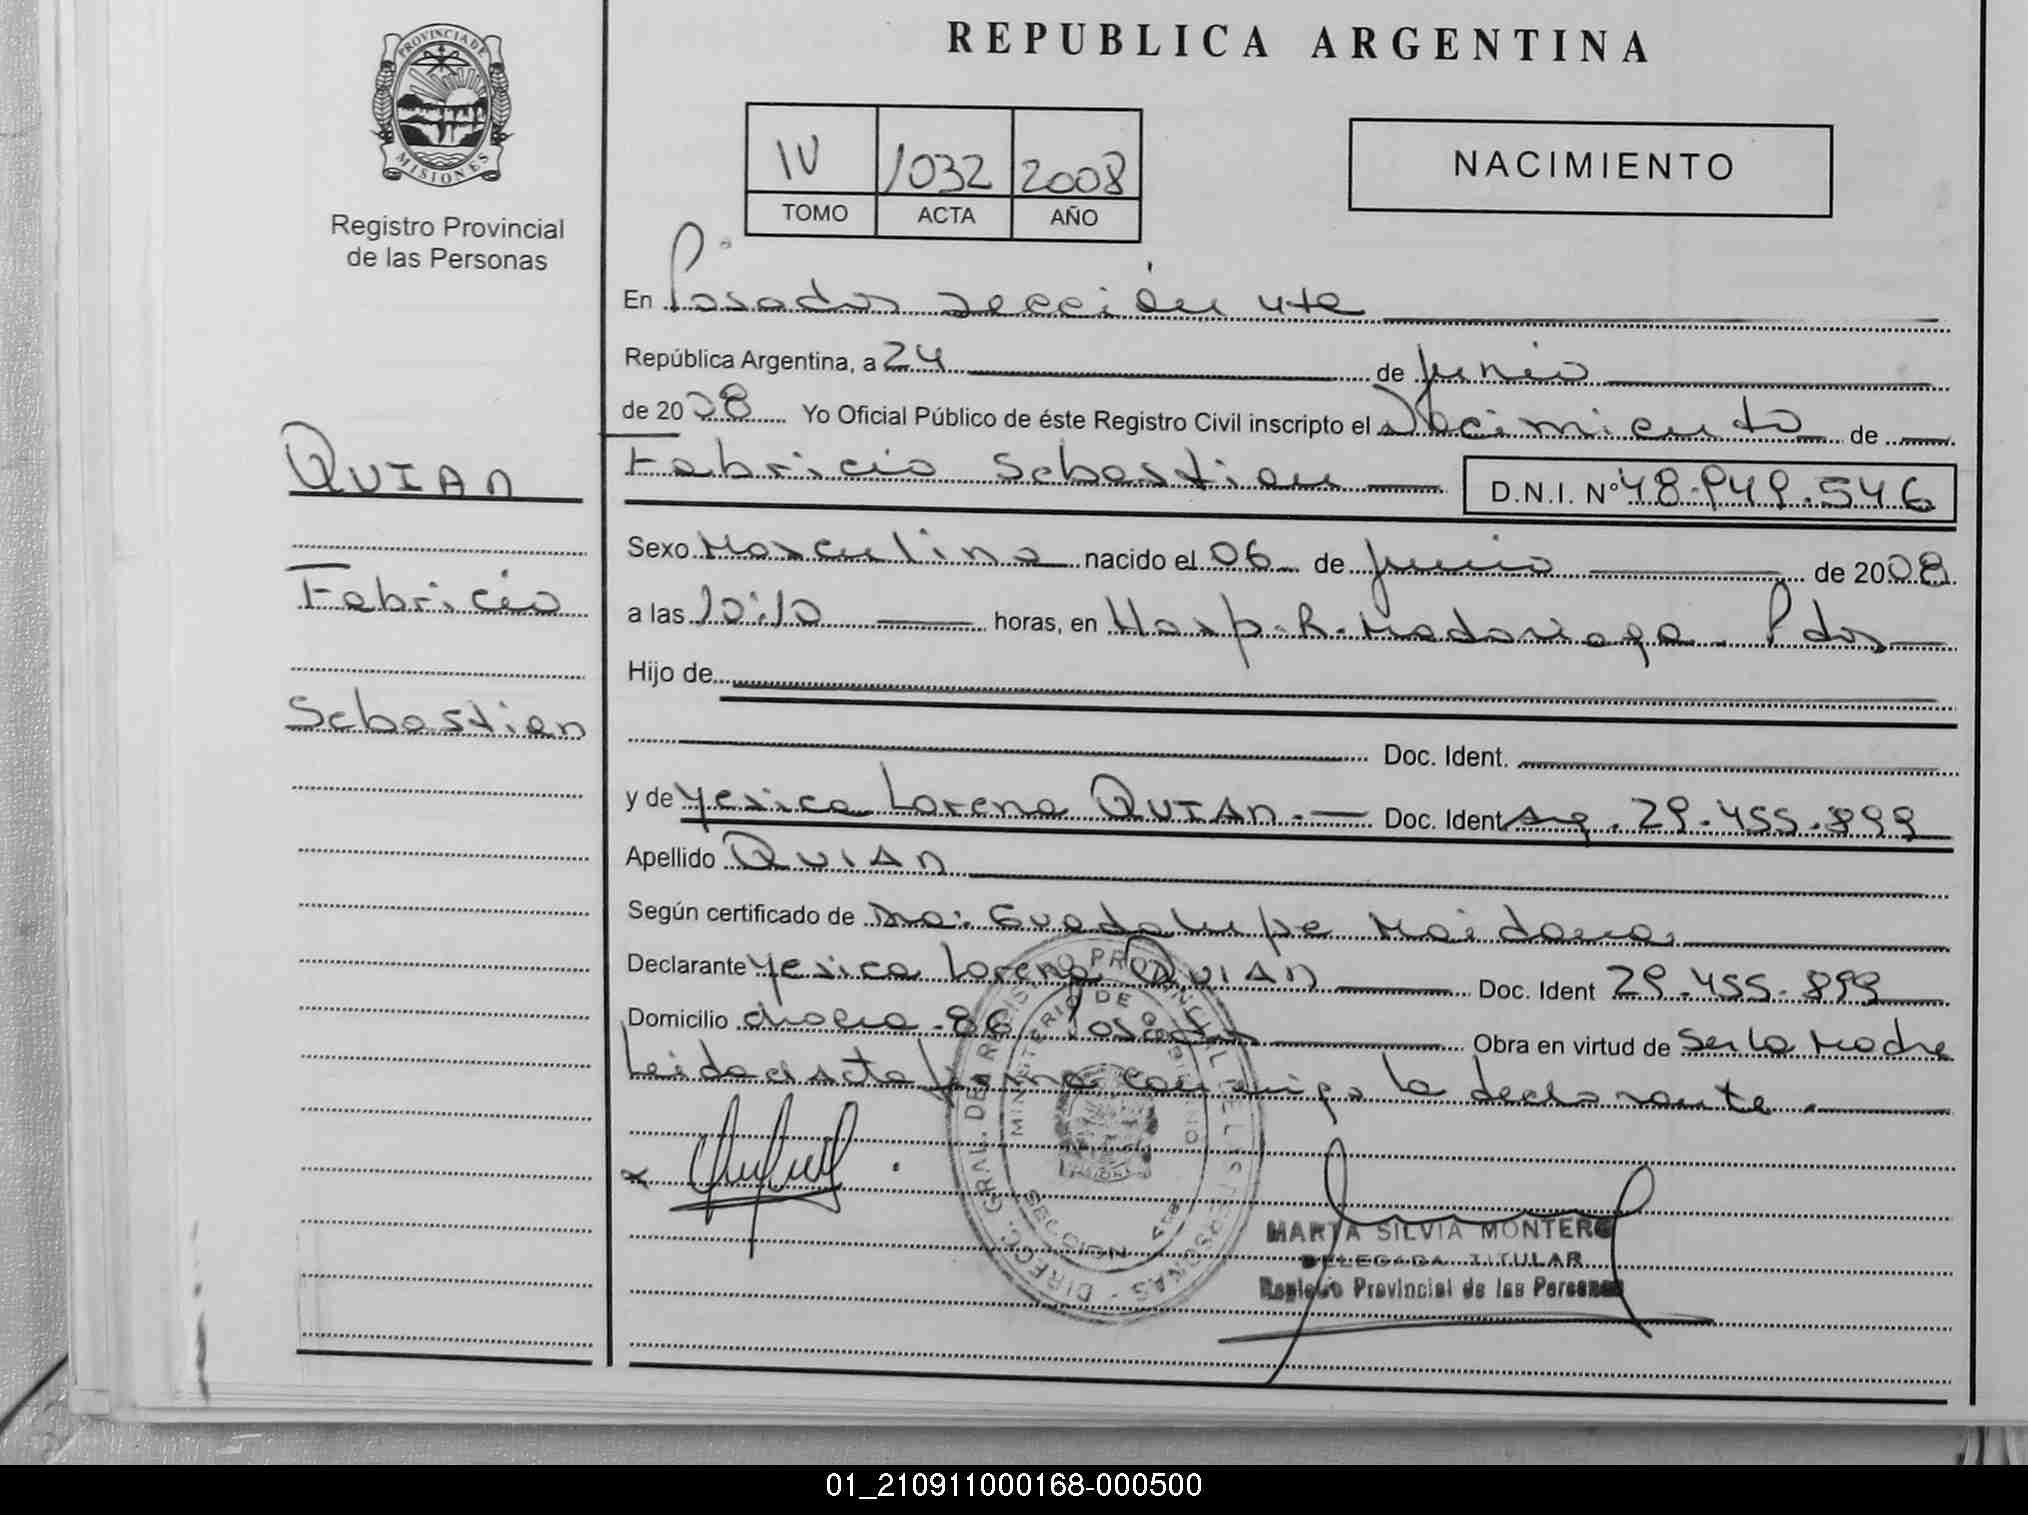 PROVINCIA DE
MISIONES
Registro Provincial
de las Personas
QUIAN
Fabricio
Sebastian
REPUBLICA ARGENTINA
IV 1032 2008
TOMO ACTA AÑO
NACIMIENTO
En Posadas sección 4ta
República Argentina, a 24 de junio
de 2008 Yo Oficial Público de éste Registro Civil inscripto el Nacimiento de
Fabricio Sebastian D.N.I. Nº 48.949.546
Sexo Masculino nacido el 06 de junio de 2008
a las 10:10 horas, en Hosp. R. Madariaga - Pdas
Hijo de
Doc. Ident.
y de Yesica Lorena QUIAN.- Doc. Ident Arg. 29.455.899
Apellido QUIAN
Según certificado de Dra: Guadalupe Maidana
Declarante Yesica Lorena QUIAN Doc. Ident 29.455.899
Domicilio chacra - 86 Posadas Obra en virtud de Ser la Madre
Leida el Acta firma conmigo la declarante.
DIRECC. GRAL. DE REGISTRO PROVINCIAL DE LAS PERSONAS
MINISTERIO DE GOBIERNO
MARTA SILVIA MONTERO
DELEGADA TITULAR
Registro Provincial de las Personas
01_210911000168-000500